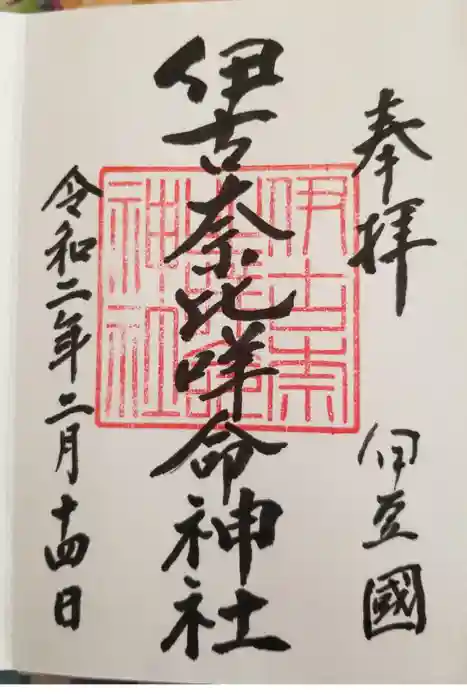 奉拝
伊豆國
伊古奈比咩命神社
令和二年二月十四日
伊古奈
比咩命
神社